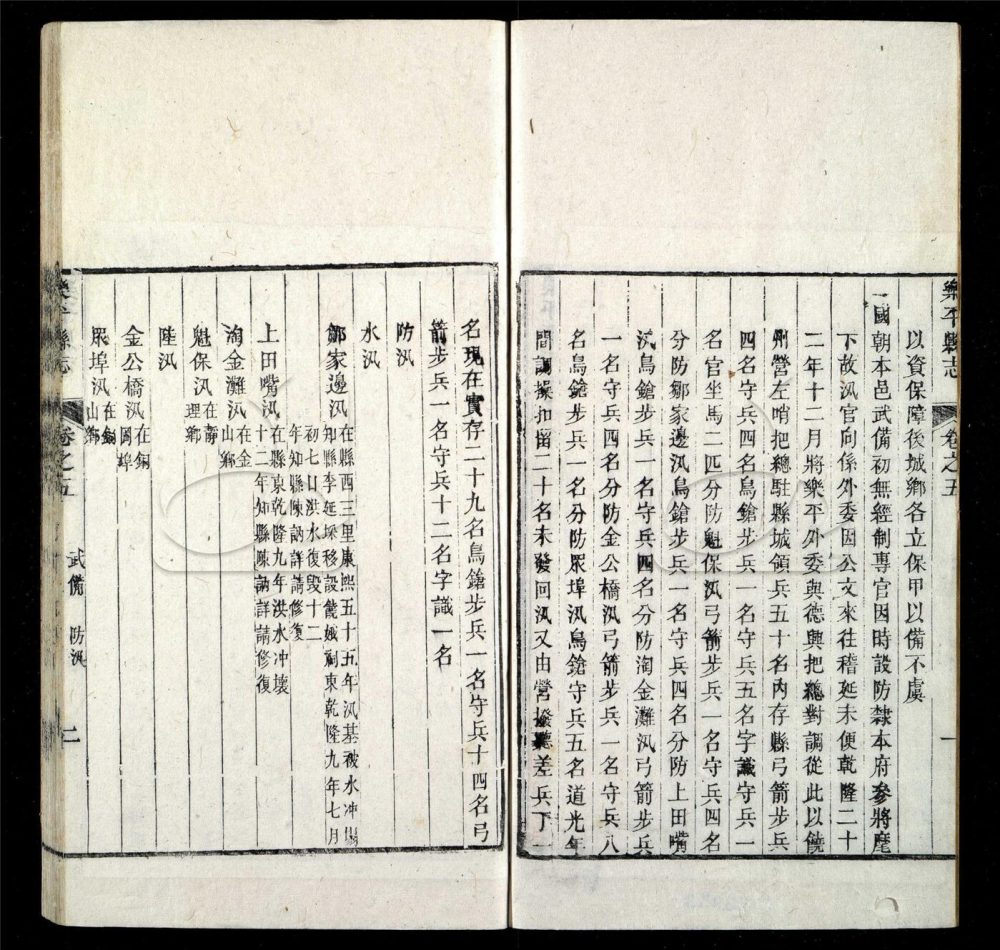 樂平縣志
卷之五
一
以資保障後城鄉各立保甲以備不虞
國朝本邑武備初無經制專官因時設防隸本府參將麾
下故汛官向係外委因公文來往稽延未便乾隆二十
二年十二月將樂平外委與德興把總對調從此以饒
州營左哨把總駐縣城領兵五十名內存縣弓箭步兵
四名守兵四名鳥鎗步兵一名守兵五名字識守兵一
名官坐馬二匹分防魁保汛弓箭步兵一名守兵四名
分防鄒家邊汛鳥鎗步兵一名守兵四名分防上田嘴
汛鳥鎗步兵一名守兵四名分防淘金灘汛弓箭步兵
一名守兵四名分防金公橋汛弓箭步兵一名守兵八
名鳥鎗步兵一名分防眾埠汛鳥鎗守兵五名道光年
間調操扣留二十名未發回汛又由營撥聽差兵丁一
名現在實存二十九名鳥鎗步兵一名守兵十四名弓
箭步兵一名守兵十二名字識一名
防汛
水汛
鄒家邊汛在縣西三里康熙五十五年汛基被水冲塌
知縣李延採移設饒娥祠東乾隆九年七月
初七日洪水復毀十二
年知縣陳訥詳請修復
上田嘴汛在縣東乾隆九年洪水冲壞
十二年知縣陳訥詳請修復
淘金灘汛在金
山鄉
魁保汛在靜
理鄉
陸汛
金公橋汛在銅
埠
眾埠汛在
山鄉
樂平縣志
卷之五
武備
防汛
二